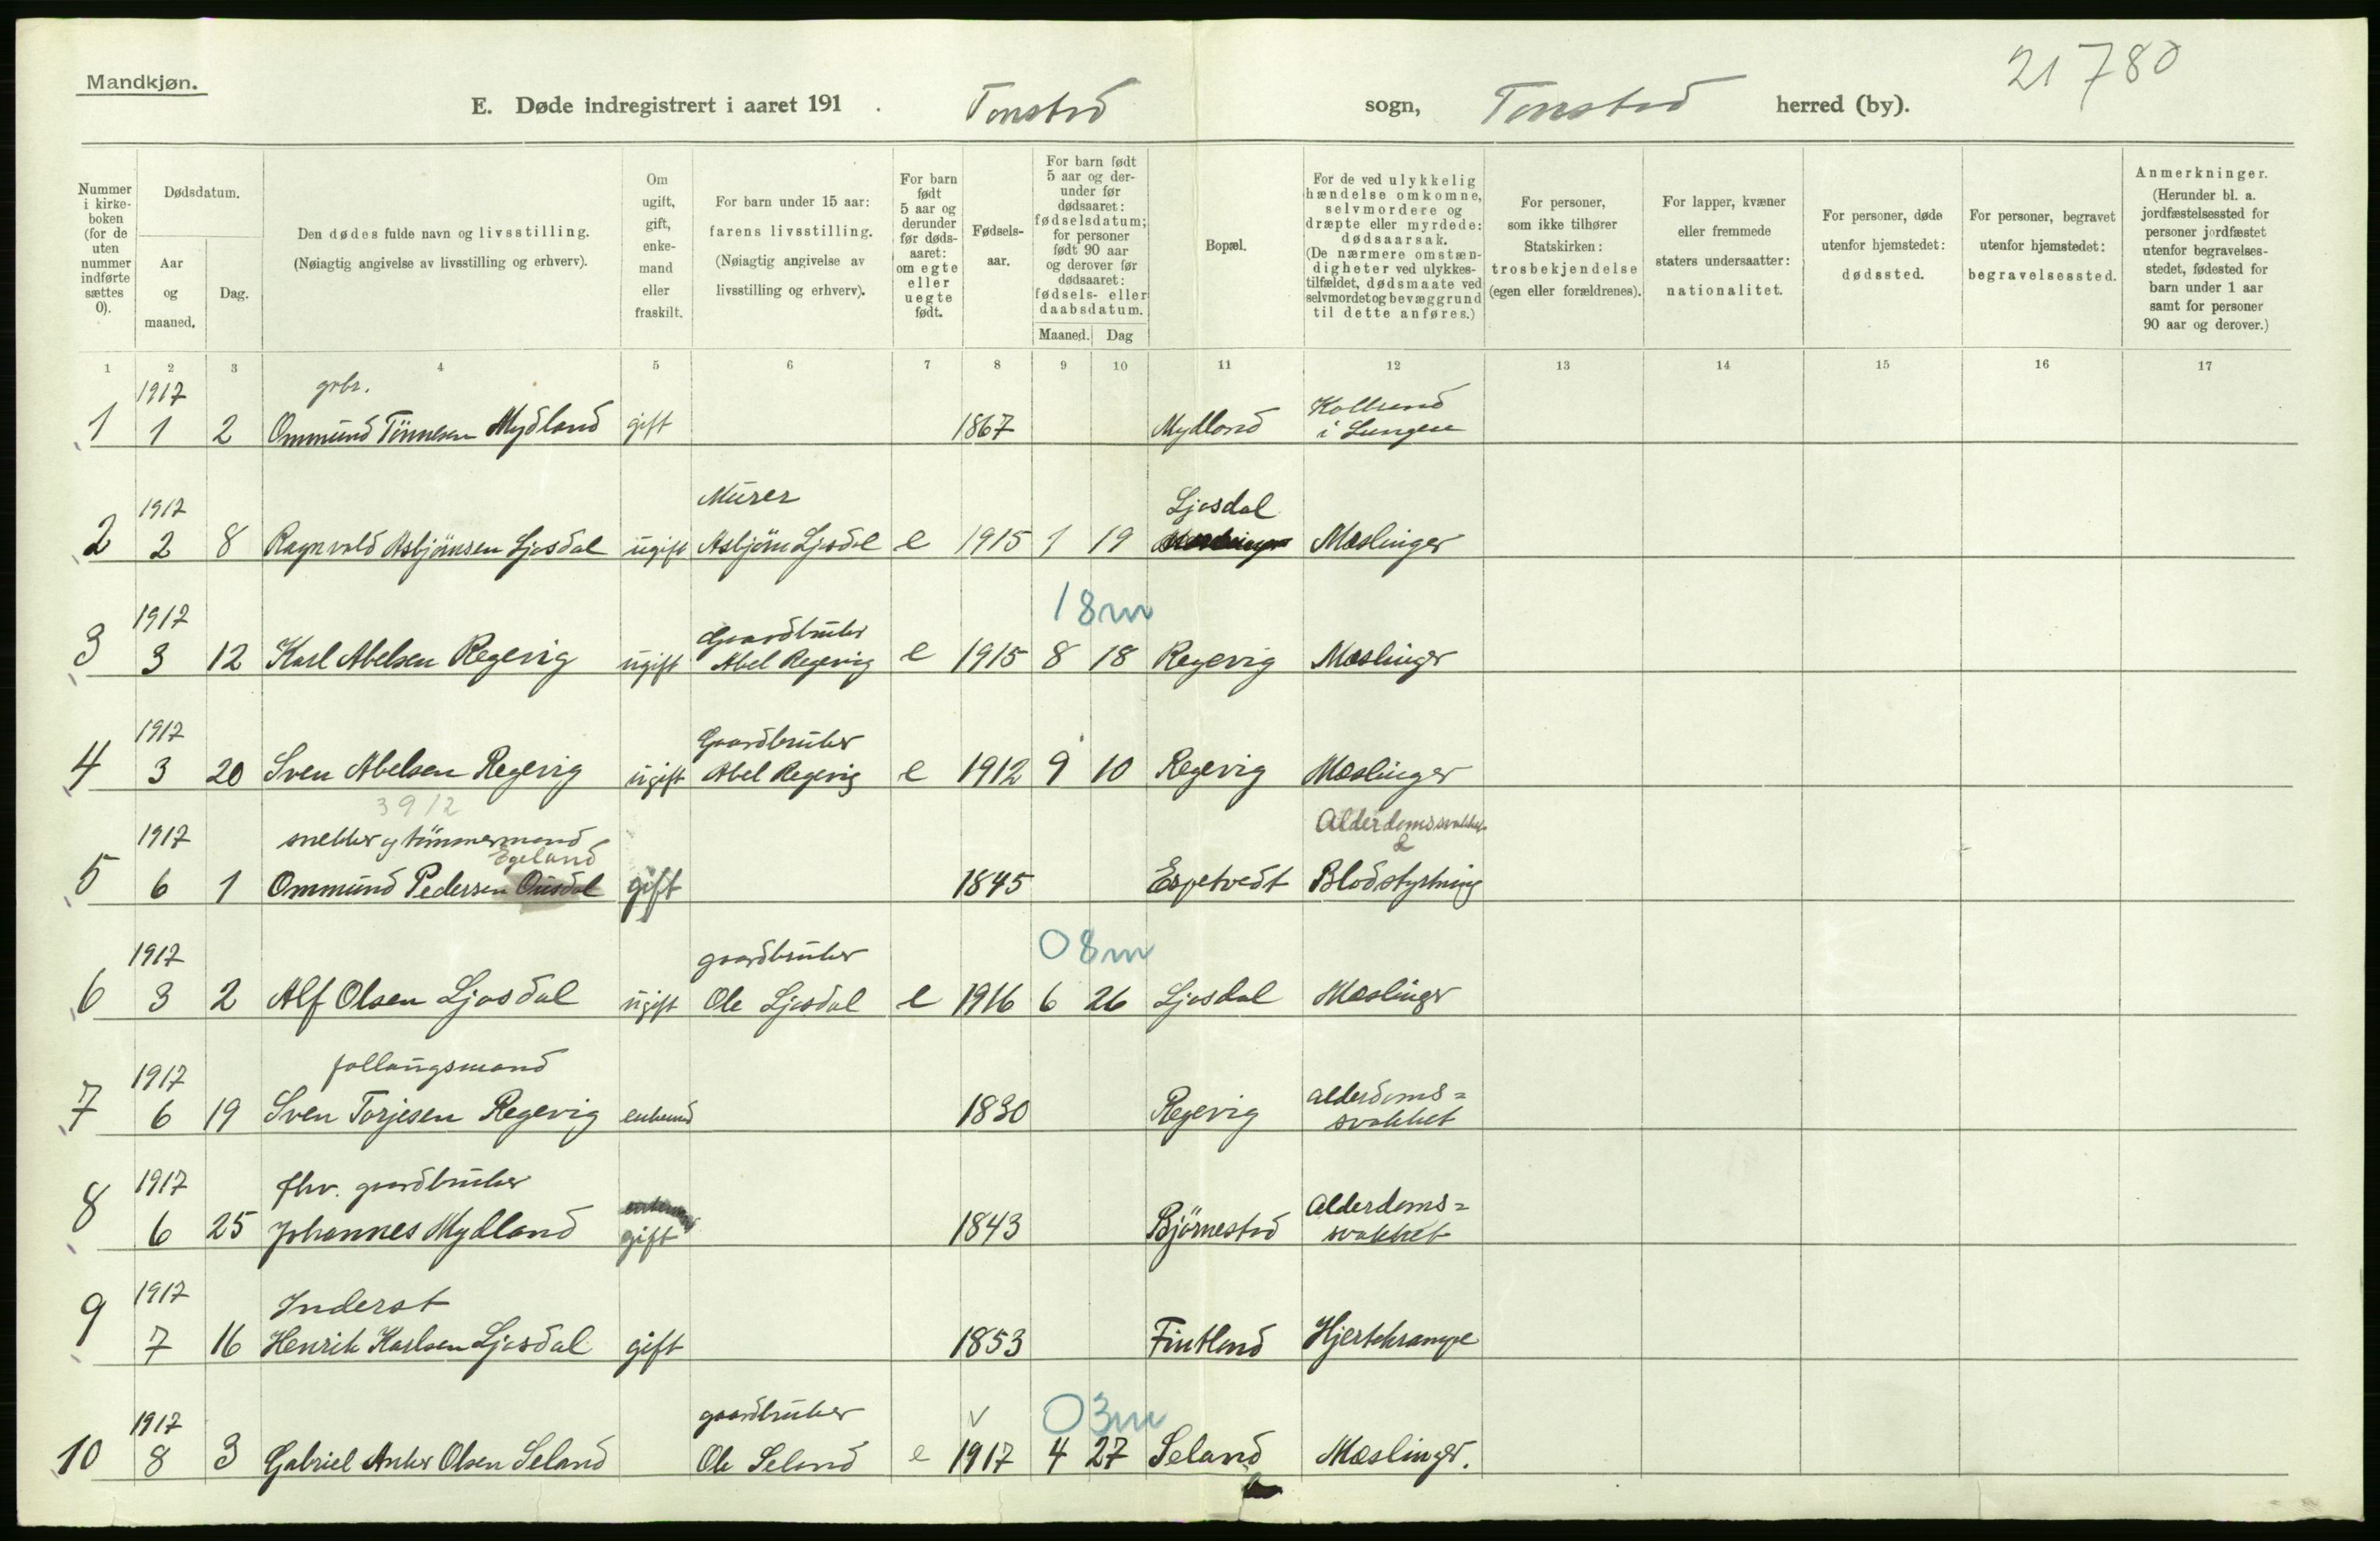 Mandkjøn.
21780
E. Døde indregistrert i aaret 191 . Tonstad sogn, Tonstad herred (by).
Nummer i kirkeboken (for de uten nummer indførte sættes 0).
Dødsdatum.
Aar og maaned.
Dag.
Den dødes fulde navn og livsstilling.
(Nøiagtig angivelse av livsstilling og erhverv).
Om ugift, gift, enkemand eller fraskilt.
For barn under 15 aar: farens livsstilling.
(Nøiagtig angivelse av livsstilling og erhverv).
For barn født 5 aar og derunder før dødsaaret: om egte eller uegte født.
Fødselsaar.
For barn født 5 aar og derunder før dødsaaret: fødselsdatum; for personer født 90 aar og derover før dødsaaret: fødsels- eller daabsdatum.
Maaned. Dag
Bopæl.
For de ved ulykkelig hændelse omkomne, selvmordere og dræpte eller myrdede: dødsaarsak.
(De nærmere omstændigheter ved ulykkestilfældet, dødsmaate ved selvmordet og bevæggrund til dette anføres.)
For personer, som ikke tilhører Statskirken: trosbekjendelse (egen eller forældrenes).
For lapper, kvæner eller fremmede staters undersaatter: nationalitet.
For personer, døde utenfor hjemstedet: dødssted.
For personer, begravet utenfor hjemstedet: begravelsessted.
Anmerkninger.
(Herunder bl. a. jordfæstelsessted for personer jordfæstet utenfor begravelsesstedet, fødested for barn under 1 aar samt for personer 90 aar og derover.)
1 2 3 4 5 6 7 8 9 10 11 12 13 14 15 16 17
1917 grbr. Koldbrand
1 1 2 Ommund Tønnesen Mydland gift 1867 Mydland i Lungen
1917 Murer Ljosdal
2 2 8 Ragnvald Asbjörnsen Ljosdal ugift Asbjörn Ljosdal e 1915 1 19 Mæslinger
1917 Gaardbruker 18m
3 3 12 Karl Abelsen Regevig ugift Abel Regevig e 1915 8 18 Regevig Mæslinger
1917 Gaardbruker
4 3 20 Sven Abelsen Regevig ugift Abel Regevig e 1912 9 10 Regevig Mæslinger
3912
1917 snekker og tömmermand Alderdomssvakhet
Egeland &
5 6 1 Ommund Pedersen Ousdal gift 1845 Espetvedt Blodstyrtning
1917 gaardbruker 08m
6 3 2 Alf Olsen Ljosdal ugift Ole Ljosdal e 1916 6 26 Ljosdal Mæslinger
1917 follaugsmand alderdoms=
7 6 19 Sven Torjesen Regevig enkemd 1830 Regevig svakhet
1917 fhv. gaardbruker Alderdoms=
8 6 25 Johannes Mydland gift 1843 Björnestad svakhet
1917 Inderst
9 7 16 Henrik Karlsen Ljosdal gift 1853 Fintland Hjertekrampe
1917 gaardbruker v 03m
10 8 3 Gabriel Anker Olsen Seland Ole Seland e 1917 4 27 Seland Mæslinger.